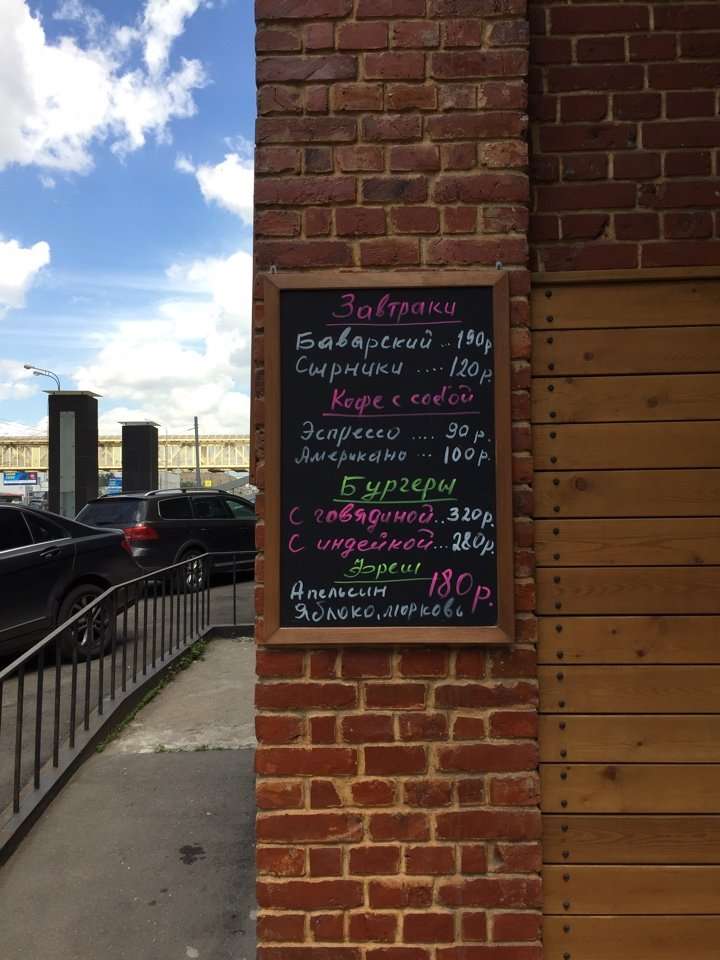 Завтраки
Баварский .. 190р
Сырники .... 120р.
Кофе с собой
Эспрессо .... 90 р.
Американо .... 100р.
Бургеры
С говядиной..320р.
С индейкой...280р.
Фреш
Апельсин 180р.
Яблоко, морковь